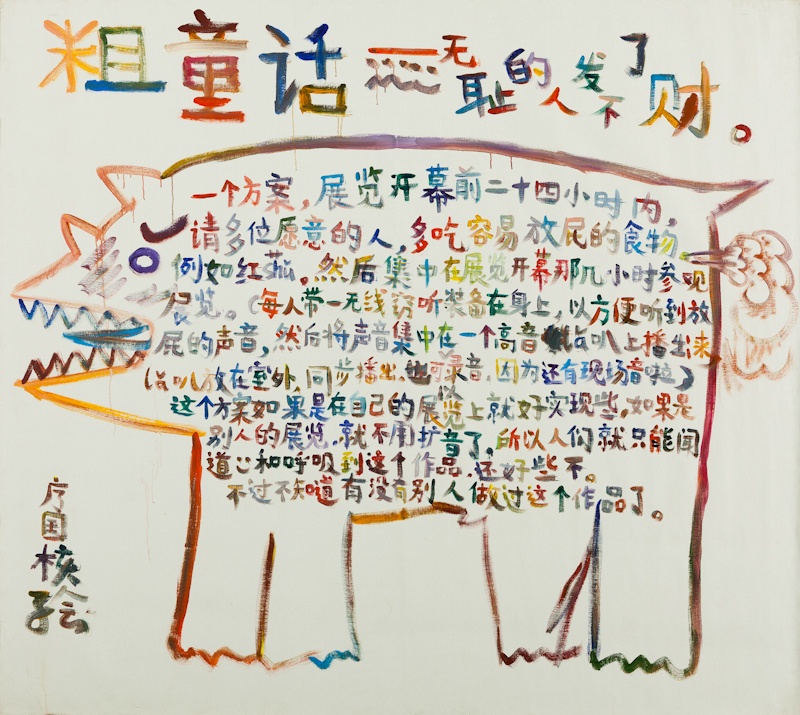 粗童话 —— 无耻的人发不了财。
一个方案，展览开幕前二十四小时内，
请多位愿意的人，多吃容易放屁的食物，
例如红。然后集中在展览开幕那几小时参观
展览。（每人带一无线窃听装备在身上，以方便听到放
屁的声音，然后将声音集中在一个高音喇叭上播出来
（喇叭放在室外，同步播出，也可录音，因为还有现场音啦）
这个方案如果是在自己的展览上就好实现些，如果是
别人的展览，就不用扩音了，所以人们就只能闻
道和呼吸到这个作品，还好些不。
不过不知道有没有别人做过这个作品了。
国核
绘